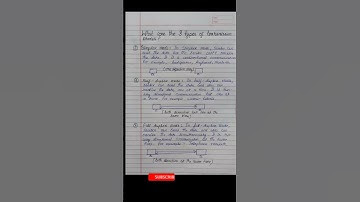 What are the 3 types of transmission
modes?
① Simplex mode: In Simplex mode, Sender can
send the data but the sender can't receive
the data. It is a unidirectional communication
For example: keyboard,
(One direction only)
② Half-duplex mode: In half-duplex mode,
Sender can send the data and also can
receive the data one at a time. It is two
way directional communication but one at
a time. For example
(Both direction but one at the
same time)
③ Full-duplex mode: In full-duplex mode,
Sender can send the data and also can
receive the data simultaneously. It is two
way directional communication at the same
time. For example: Telephone network
(Both direction at the same time)
SUBSCRIBE